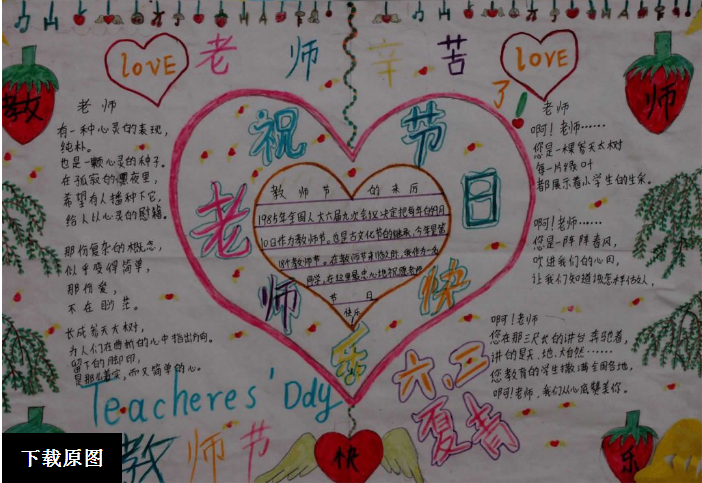 LOVE
老师辛苦了!
LOVE
教
师
老师
有一种心灵的表现,
纯朴。
也是一颗心灵的种子。
在孤寂的黑夜里,
希望有人播种下它,
给人以心灵的慰籍。
那份复杂的概念,
似乎变得简单,
那份爱,
不在渺茫。
长成参天大树,
为人们在曲折的心中指出方向。
留下的脚印,
是那么着实,而又简单的心。
祝
节
老
日
师
快
乐
教师节的来历
1985年全国人大六届九次会议决定把每年的9月
10日作为教师节。也是古文化节的继承,今年是第
18个教师节。在教师节来临之际,我作为一名
同学,在这里衷心地祝愿老师
节日
快乐
老师
啊!老师……
您是一棵参天大树
每一片绿叶
都展示着小学生的生采。
啊!老师……
您是一阵阵春风,
吹进我们的心田,
让我们知道该怎样
啊!老师
您在那三尺长的讲台奔驰着,
讲的是天、地、大自然……
您教育的学生撒满全国各地,
啊!老师,我们从心底赞美你。
Teacheres' Ddy
六、三
夏青
教师节
快
乐
下载原图